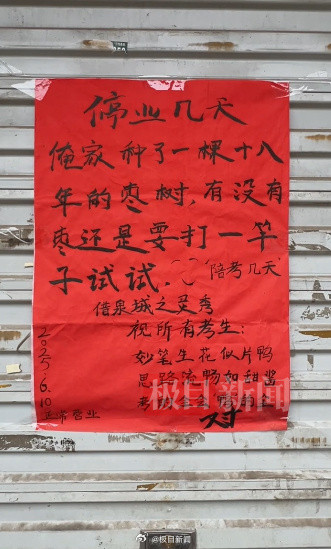 停业几天
俺家种了一棵十八
年的枣树,有没有
枣还是要打一竿
子试试.
陪考几天
借泉城之灵秀
祝所有考生:
妙笔生花似片鸭
思路流畅如甜酱
2025.6.10正常营业
极目新闻
@极目新闻